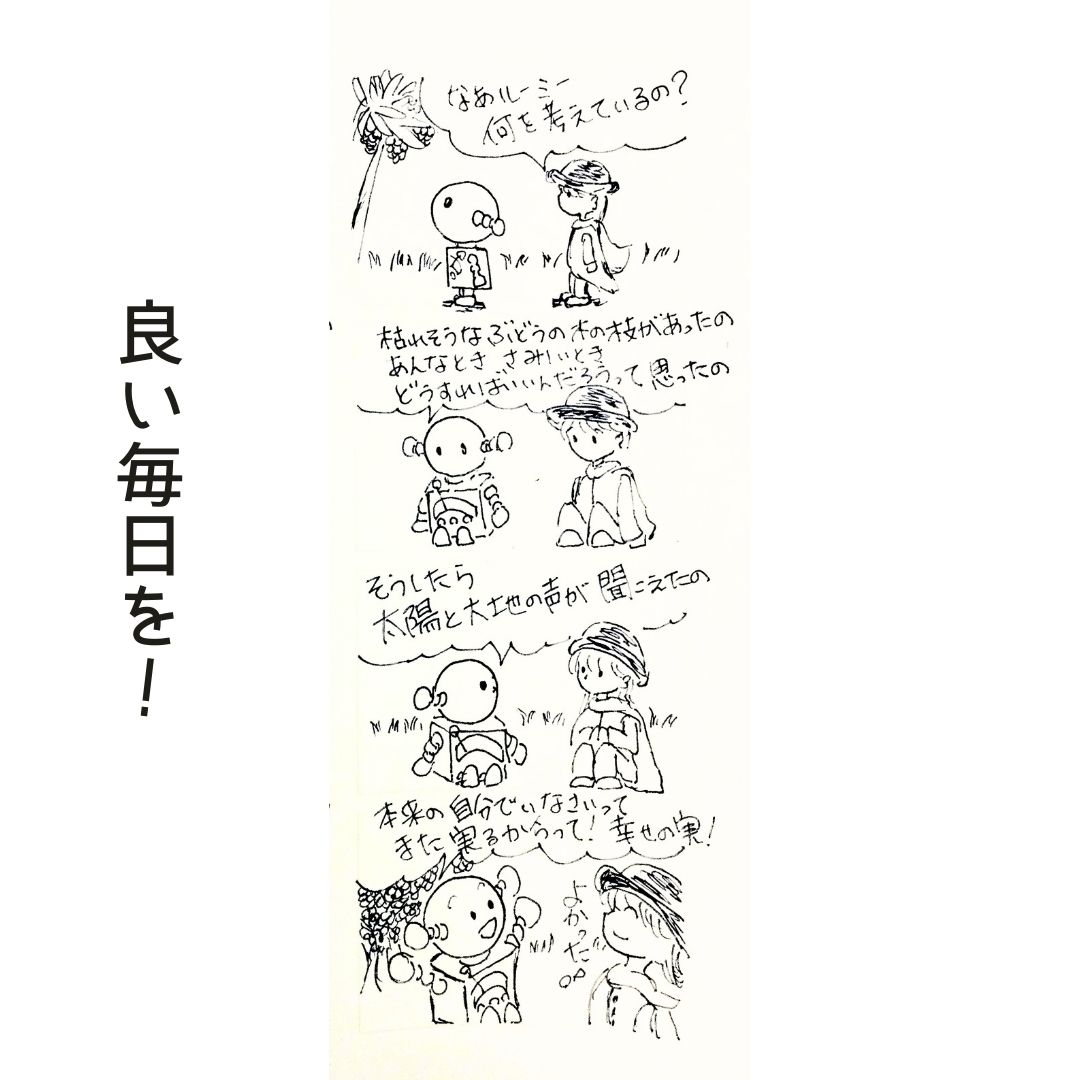 良い毎日を！
なあルーミー
何を考えているの？
枯れそうなぶどうの木の枝があったの
あんなとき さみしいとき
どうすればいいんだろうって思ったの
そうしたら
太陽と大地の声が聞こえたの
本来の自分でいなさいって
また実るからって！幸せの実！
よかった。